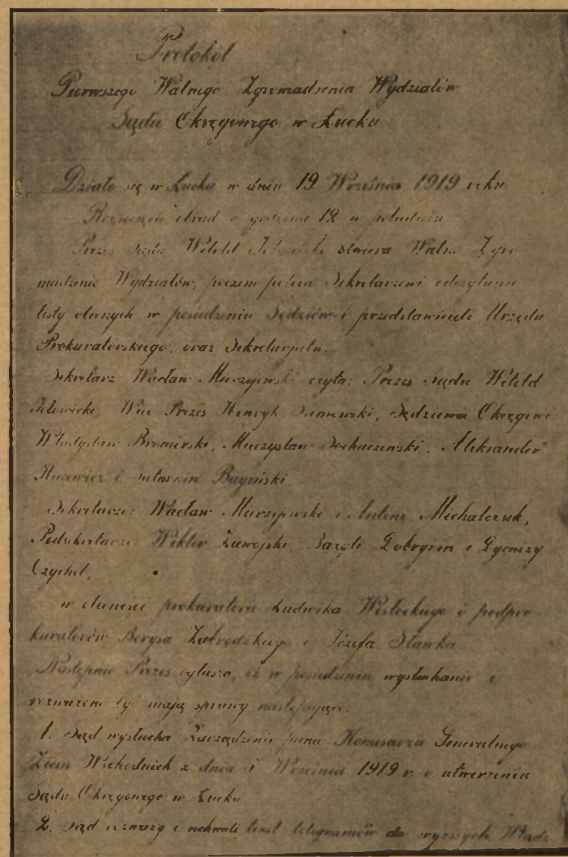 Protokół
Pierwszego Walnego Zgromadzenia Wydziałów
Sądu Okręgowego w Łucku
Działo się w Łucku w dniu 19 Września 1919 roku
obrad o godzinie 12 w południe
Prezes Sądu Witold otwiera Walne Zgro
madzenie Wydziałów, poczem poleca Sekretarzowi odczytanie
listy obecnych w posiedzeniu Sędziów i przedstawicieli Urzędu
Prokuratorskiego, oraz Sekretarjatu.
Sekretarz Wacław czyta: Prezes Sądu Witold
Wice Prezes Henryk Sędziowie Okręgowi
Władysław Mieczysław Aleksander
i Bagiński,
Sekretarze: Wacław i Antoni Michalczuk,
Podsekretarze: Wiktor Bazyli i
w obecności prokuratora Ludwika i podpro
kuratorów Borysa i Józefa Sławka
Następnie Prezes ogłasza, iż w posiedzeniu wysłuchane i
rozważone być mają sprawy następujące:
1. Sąd wysłucha Zarządzenie pana Komisarza Generalnego
Ziem Wschodnich z dnia Września 1919 r. o utworzeniu
Sądu Okręgowego w Łucku
2. Sąd rozważy i uchwali tekst telegramów do Władz